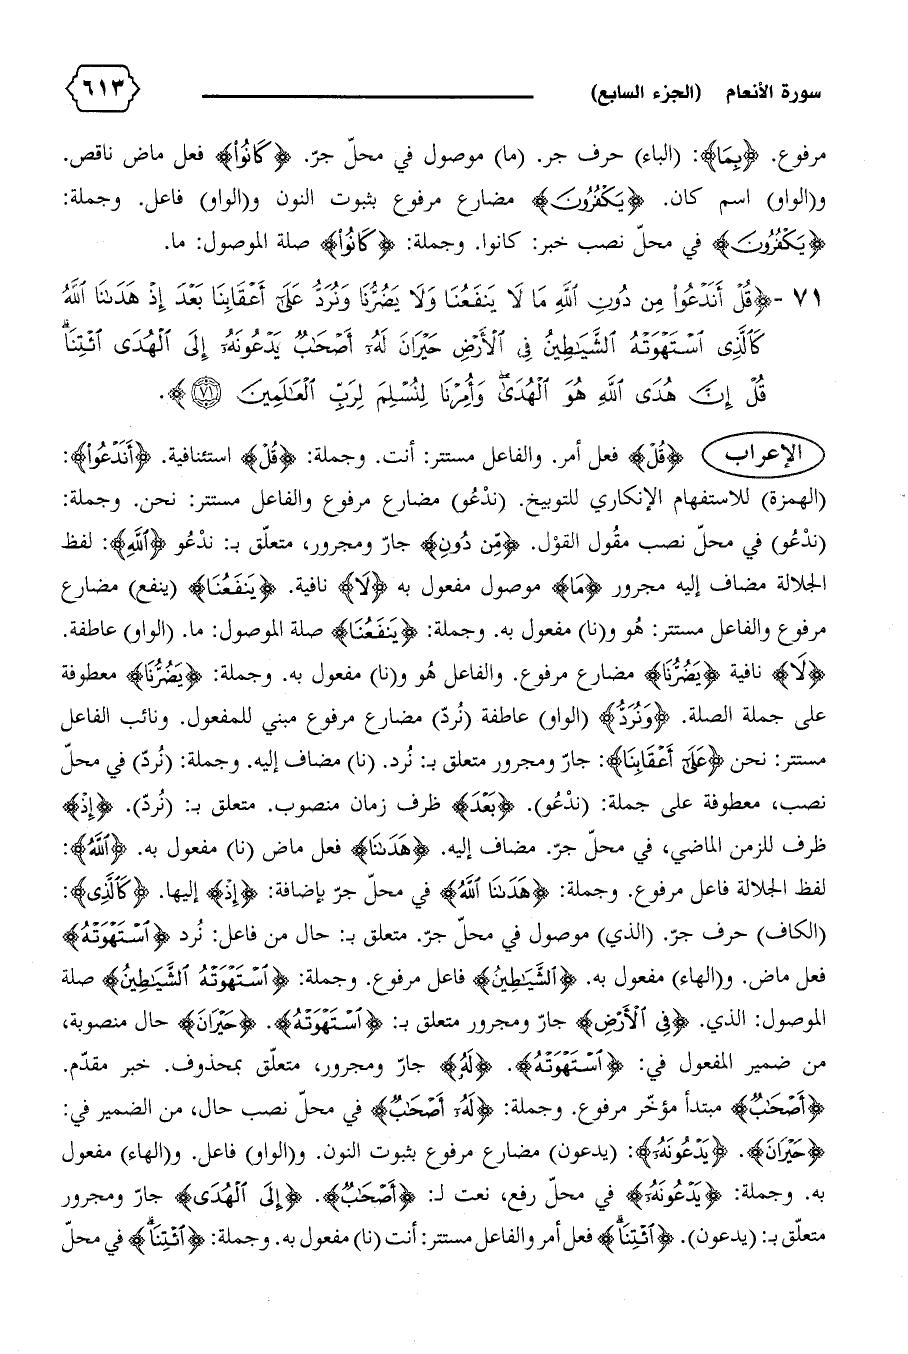 سورة الأنعام (الجزء السابع) ٦١٣
مرفوع. ﴿بِمَا﴾: (الباء) حرف جر. (ما) موصول في محلّ جرّ. ﴿كَانُواْ﴾ فعل ماض ناقص.
و(الواو) اسم كان. ﴿يَكْفُرُونَ﴾ مضارع مرفوع بثبوت النون و(الواو) فاعل. وجملة:
﴿يَكْفُرُونَ﴾ في محلّ نصب خبر: كانوا. وجملة: ﴿كَانُواْ﴾ صلة الموصول: ما.
٧١ -﴿قُلْ أَنَدْعُواْ مِن دُونِ ٱللَّهِ مَا لَا يَنفَعُنَا وَلَا يَضُرُّنَا وَنُرَدُّ عَلَىٰٓ أَعْقَابِنَا بَعْدَ إِذْ هَدَىٰنَا ٱللَّهُ
كَٱلَّذِى ٱسْتَهْوَتْهُ ٱلشَّيَٰطِينُ فِى ٱلْأَرْضِ حَيْرَانَ لَهُۥٓ أَصْحَٰبٌ يَدْعُونَهُۥٓ إِلَى ٱلْهُدَى ٱئْتِنَا ۗ
قُلْ إِنَّ هُدَى ٱللَّهِ هُوَ ٱلْهُدَىٰ ۖ وَأُمِرْنَا لِنُسْلِمَ لِرَبِّ ٱلْعَٰلَمِينَ ٧١﴾.
الإعراب ﴿قُلْ﴾ فعل أمر. والفاعل مستتر: أنت. وجملة: ﴿قُلْ﴾ استئنافية. ﴿أَنَدْعُواْ﴾:
(الهمزة) للاستفهام الإنكاري للتوبيخ. (ندْعُو) مضارع مرفوع والفاعل مستتر: نحن. وجملة:
(ندْعُو) في محلّ نصب مقُول القوْل. ﴿مِن دُونِ﴾ جارّ ومجرور، متعلّق بـ: ندْعُو ﴿ٱللَّهِ﴾: لفظ
الجلالة مضاف إليه مجرور ﴿مَا﴾ موصول مفعول به ﴿لَا﴾ نافية. ﴿يَنفَعُنَا﴾ (ينفع) مضارع
مرفوع والفاعل مستتر: هُو و(نا) مفعول به. وجملة: ﴿يَنفَعُنَا﴾ صلة الموصول: ما. (الواو) عاطفة.
﴿لَا﴾ نافية ﴿يَضُرُّنَا﴾ مضارع مرفوع. والفاعل هُو و(نا) مفعول به. وجملة: ﴿يَضُرُّنَا﴾ معطوفة
على جملة الصلة. ﴿وَنُرَدُّ﴾ (الواو) عاطفة (نُردّ) مضارع مرفوع مبني للمفعول. ونائب الفاعل
مستتر: نحن ﴿عَلَىٰٓ أَعْقَابِنَا﴾: جارّ ومجرور متعلق بـ: نُرد. (نا) مضاف إليه. وجملة: (نُردّ) في محلّ
نصب، معطوفة على جملة: (ندْعُو). ﴿بَعْدَ﴾ ظرف زمان منصوب. متعلق بـ: (نُردّ). ﴿إِذْ﴾
ظرف للزمن الماضي، في محلّ جرّ. مضاف إليه. ﴿هَدَىٰنَا﴾ فعل ماض (نا) مفعول به. ﴿ٱللَّهُ﴾:
لفظ الجلالة فاعل مرفوع. وجملة: ﴿هَدَىٰنَا ٱللَّهُ﴾ في محلّ جرّ بإضافة: ﴿إِذْ﴾ إليها. ﴿كَٱلَّذِى﴾:
(الكاف) حرف جرّ. (الذي) موصول في محلّ جرّ. متعلق بـ: حال من فاعل: نُرد ﴿ٱسْتَهْوَتْهُ﴾
فعل ماض. و(الهاء) مفعول به. ﴿ٱلشَّيَٰطِينُ﴾ فاعل مرفوع. وجملة: ﴿ٱسْتَهْوَتْهُ ٱلشَّيَٰطِينُ﴾ صلة
الموصول: الذي. ﴿فِى ٱلْأَرْضِ﴾ جارّ ومجرور متعلق بـ: ﴿ٱسْتَهْوَتْهُ﴾. ﴿حَيْرَانَ﴾ حال منصوبة،
من ضمير المفعول في: ﴿ٱسْتَهْوَتْهُ﴾. ﴿لَهُۥٓ﴾ جارّ ومجرور، متعلّق بمحذوف. خبر مقدّم.
﴿أَصْحَٰبٌ﴾ مبتدأ مؤخّر مرفوع. وجملة: ﴿لَهُۥٓ أَصْحَٰبٌ﴾ في محلّ نصب حال، من الضمير في:
﴿حَيْرَانَ﴾. ﴿يَدْعُونَهُۥٓ﴾: (يدعون) مضارع مرفوع بثبوت النون. و(الواو) فاعل. و(الهاء) مفعول
به. وجملة: ﴿يَدْعُونَهُۥٓ﴾ في محلّ رفع، نعت لـ: ﴿أَصْحَٰبٌ﴾. ﴿إِلَى ٱلْهُدَى﴾ جارّ ومجرور
متعلّق بـ: (يدعون). ﴿ٱئْتِنَا ۗ﴾ فعل أمر والفاعل مستتر: أنت (نا) مفعول به. وجملة: ﴿ٱئْتِنَا ۗ﴾ في محلّ